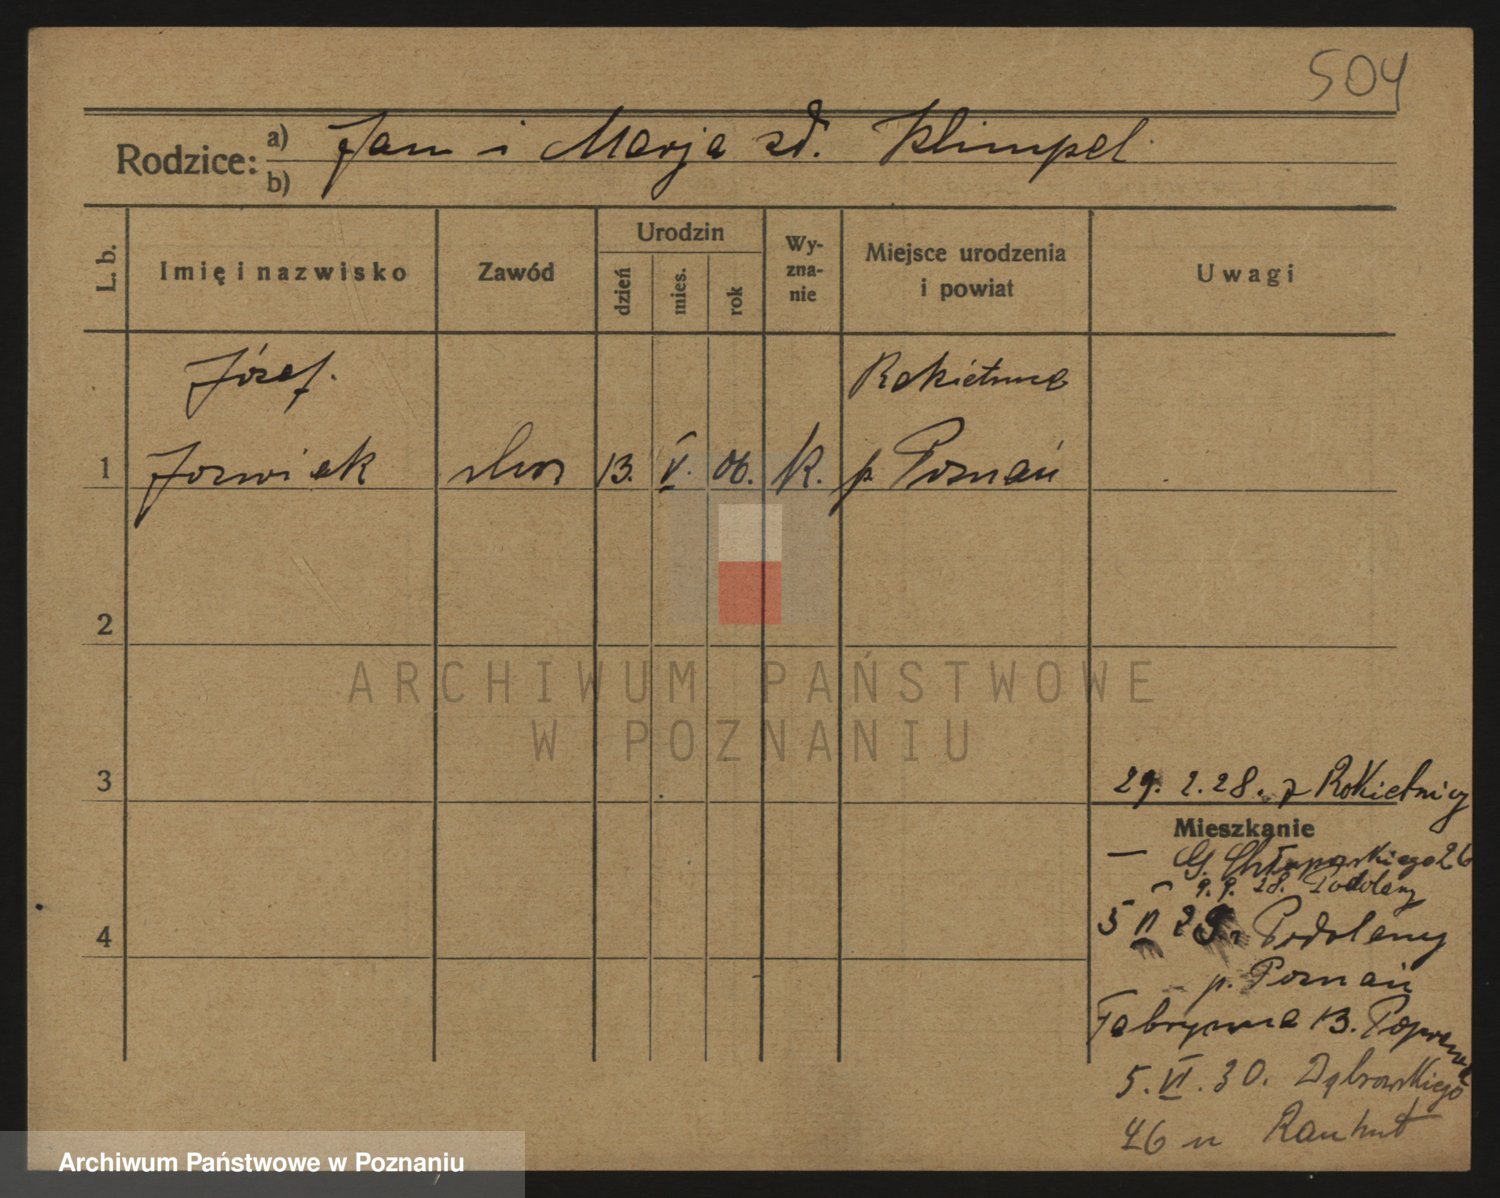 504
Rodzice: a) Jan i Marja zd. Klimpel
b)
L. b. Imię i nazwisko Zawód Urodzin dzień mies. rok Wyznanie Miejsce urodzenia i powiat Uwagi
Józef Rokietnica
1 Jozwiak 13. V. 06. K. p. Poznań
2
ARCHIWUM PAŃSTWOWE
W POZNANIU
3
29. 2. 28. z Rokietnicy
Mieszkanie
— G. Chłapowskiego 26
9. 9. 28. Podolany
4
5 II 29. Podolany
p. Poznań
Fabryczna 13.
5. VI. 30. Dąbrowskiego
46 u Rauhut
Archiwum Państwowe w Poznaniu